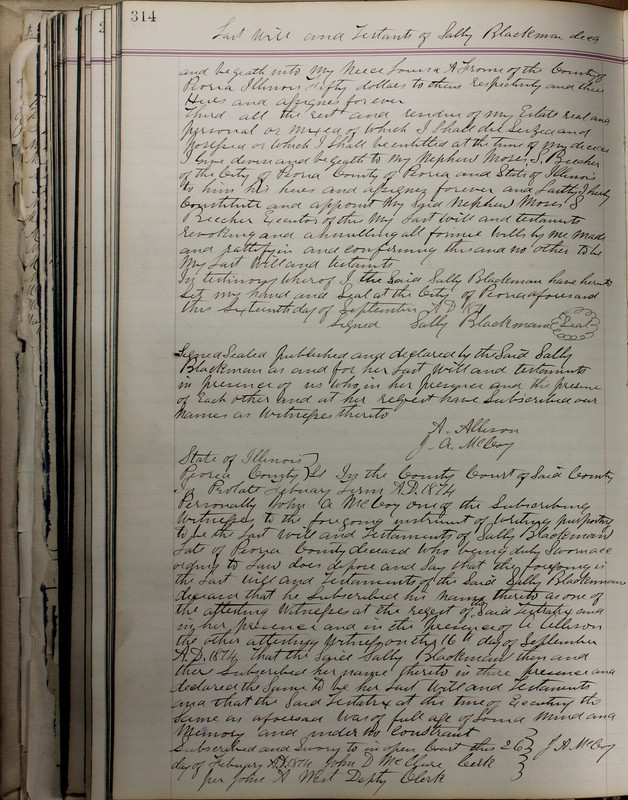 314
Last Will and Testants of Sally Blackman decd
and beqeath unto My Neece Louisa A Frome of the County of
Peoria Illinois fifty dollars to them respectivly and their
Heirs and assignes for ever
Third all the rest and residue of my Estate real and
personal or mixed of which I Shall die Seized and
Possessed or which I Shall be entitled at the time of my decees
I Give devise and beqeath to My Nephew Moses S. Beecher
of the City of Peoria County of Peoria and State of Illinois
to him his heirs and assignes forever and Lastly I hereby
Constitute and appoint My Said Nephew Moses S
Beecher Executor of the My Last Will and testaments
revoking and annulling all former Wills by Me Made
and rattifyin and confirming this and no other to be
My Last Will and testaments
In testimony Wherof I the Said Sally Blackman have herunto
set my hand and Seal at the City of Peoria aforesaid
this Sixteenth day of September A.D. 187
Signed Sally Blackman Seal
Signed Sealed published and declared by the Said Sally
Blackman as and for her Last Will and testaments
in presence of us who in her presence and the presence
of Each other and at her reqest have Subscribed our
Names as Witnesses thereto
A. Allison
J. A. McCoy
State of Illinois
Peoria County SS In the County Court of Said County
In Probate February Term A.D. 1874
Personally John A McCoy one of the Subscribing
Witnesses to the foregoing instrument of Writing purporting
to be the Last Will and Testaments of Sally Blackman
Late of Peoria County deceased Who being duly Sworn acc
ording to Law does depose and Say that the foregoing is
the Last Will and Testaments of the Said Sally Blackman
deceased that he Subscribed his Name thereto as one of
the attesting Witnesses at the reqest of the Said Testatrix and
in her presence and in the presence of A Allison
the other attesting Witness on the 16th day of September
A.D. 1874 that the Said Sally Blackman then and
ther Subscribed her name thereto in there presence and
declared the Same to be her Last Will and Testaments
and that the Said Testatrix at the time of Executing the
Same as aforesaid Was of full age of Sound Mind and
Memory and under No Constraint
Subscribed and Sworn to in open Court this 26 J A McCoy
day of February A.D. 1874 John D McClure Clerk
per John A West Depty Clerk